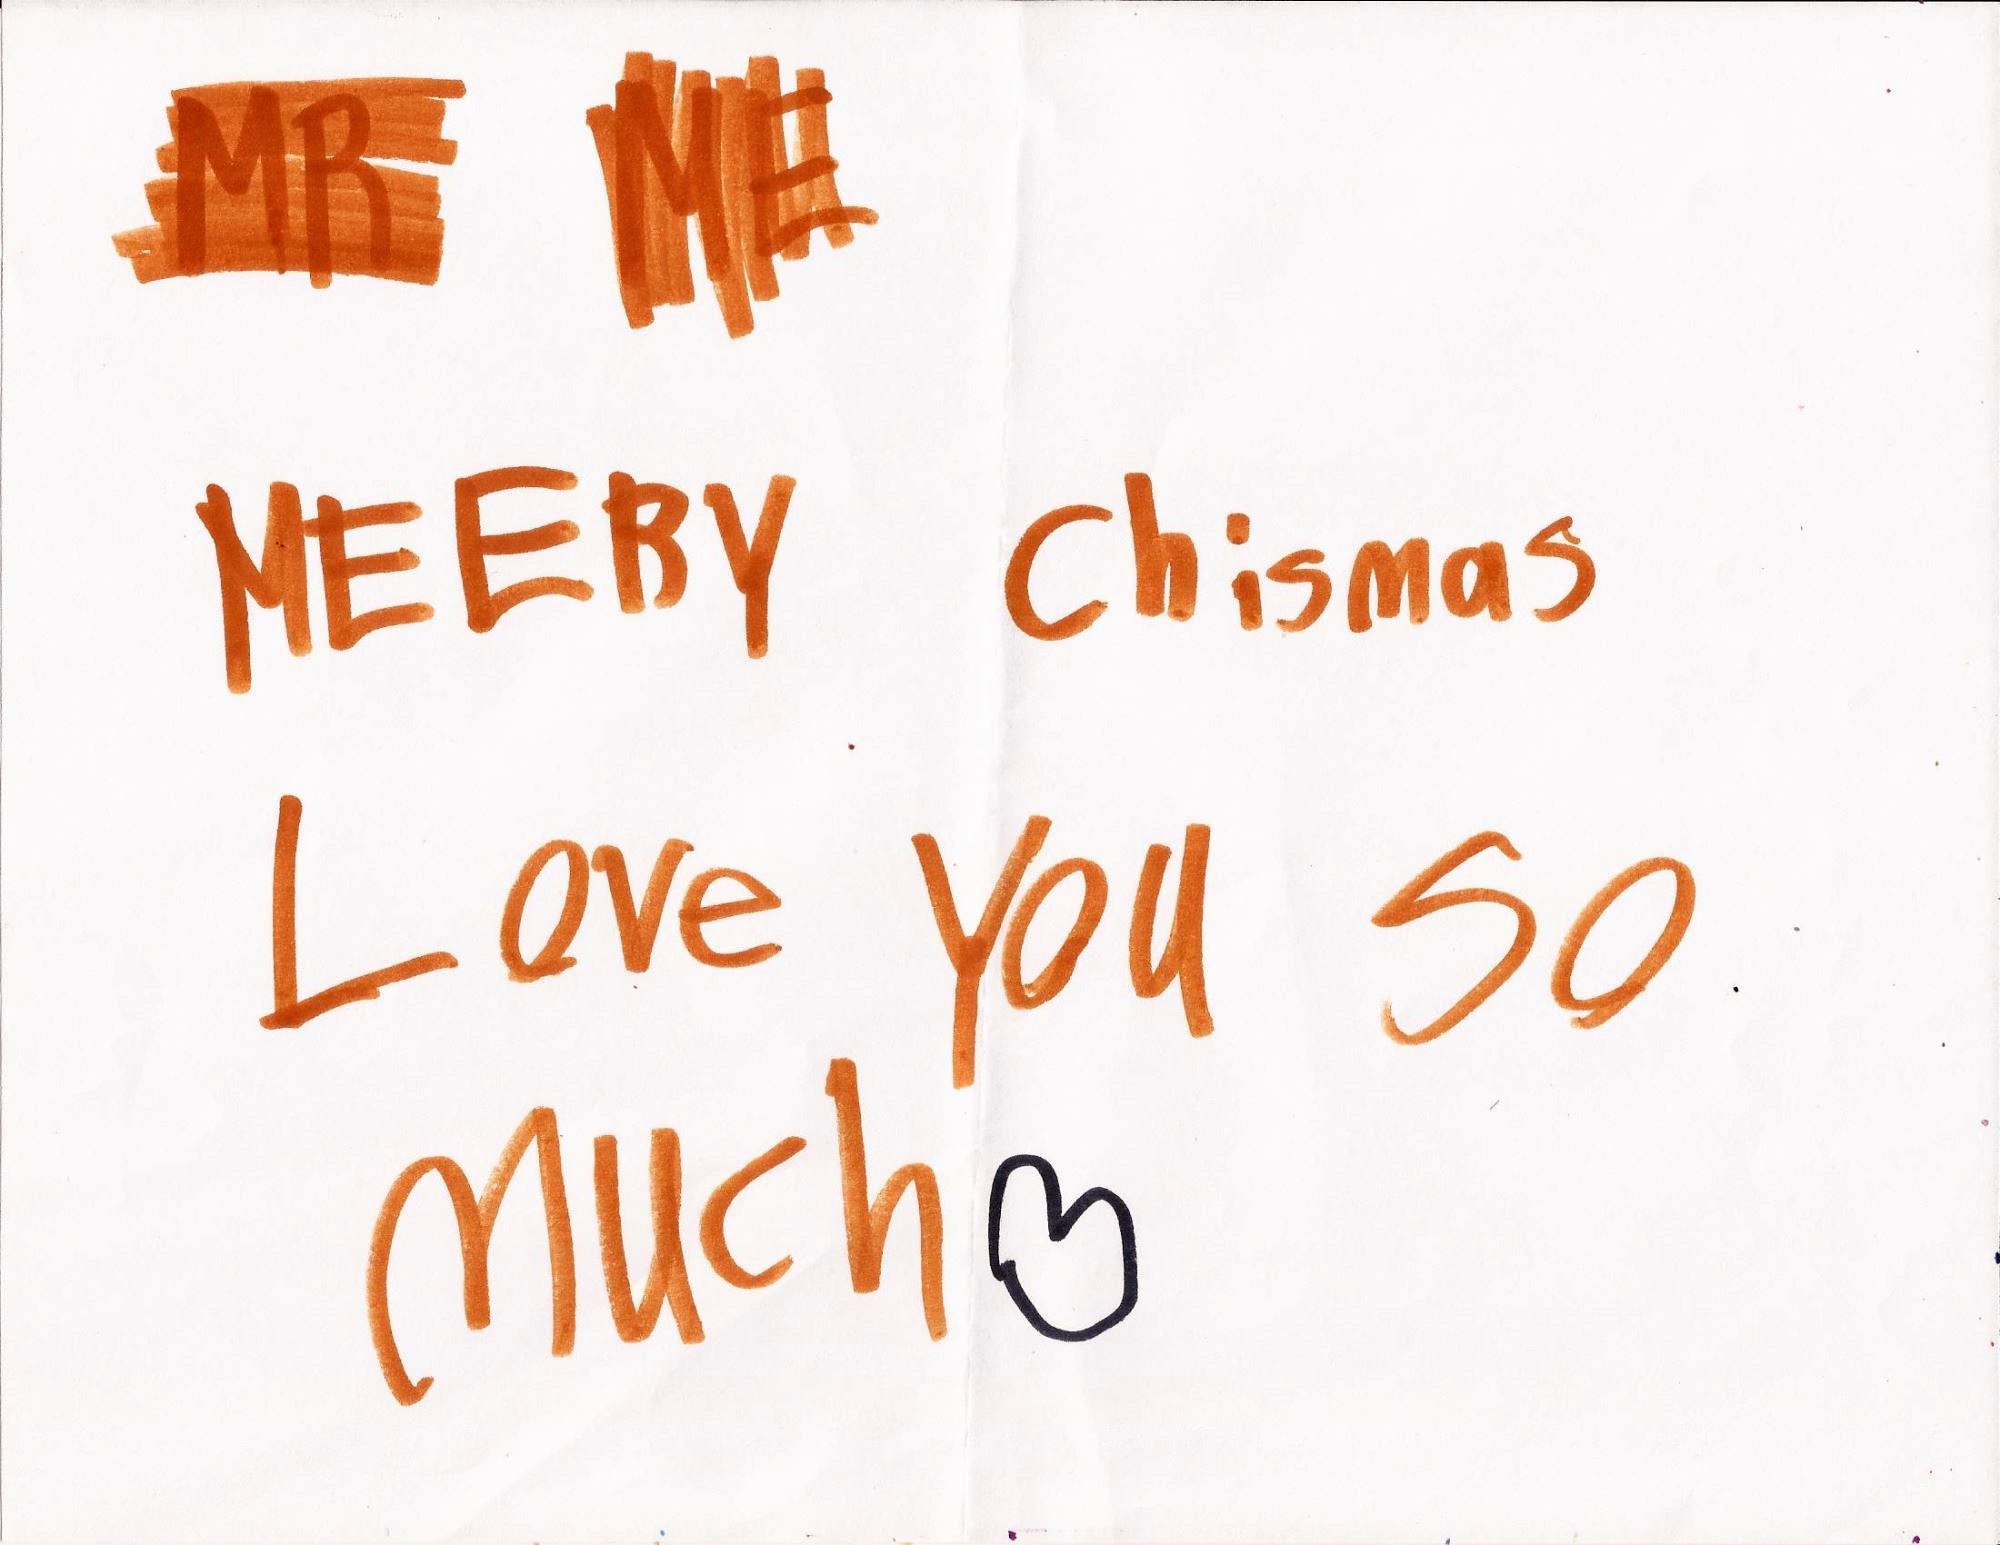 MR ME
MEERY Chismas
Love you so
much